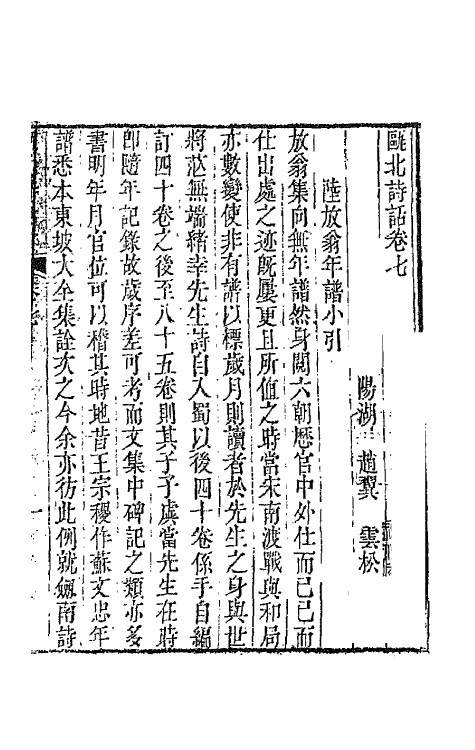 甌北詩話卷七
陽湖 趙翼 雲松
陸放翁年譜小引
放翁集向無年譜然身閱六朝歷官中外仕而已已而
仕出處之迹旣屢更且所值之時當宋南渡戰與和局
亦數變使非有譜以標歲月則讀者於先生之身與世
將茫無端緒幸先生詩自入蜀以後四十卷係手自編
訂四十卷之後至八十五卷則其子子虞當先生在時
卽隨年記錄故歲序差可考而文集中碑記之類亦多
書明年月官位可以稽其時地昔王宗稷作蘇文忠年
譜悉本東坡大全集詮次之今余亦彷此例就劒南詩